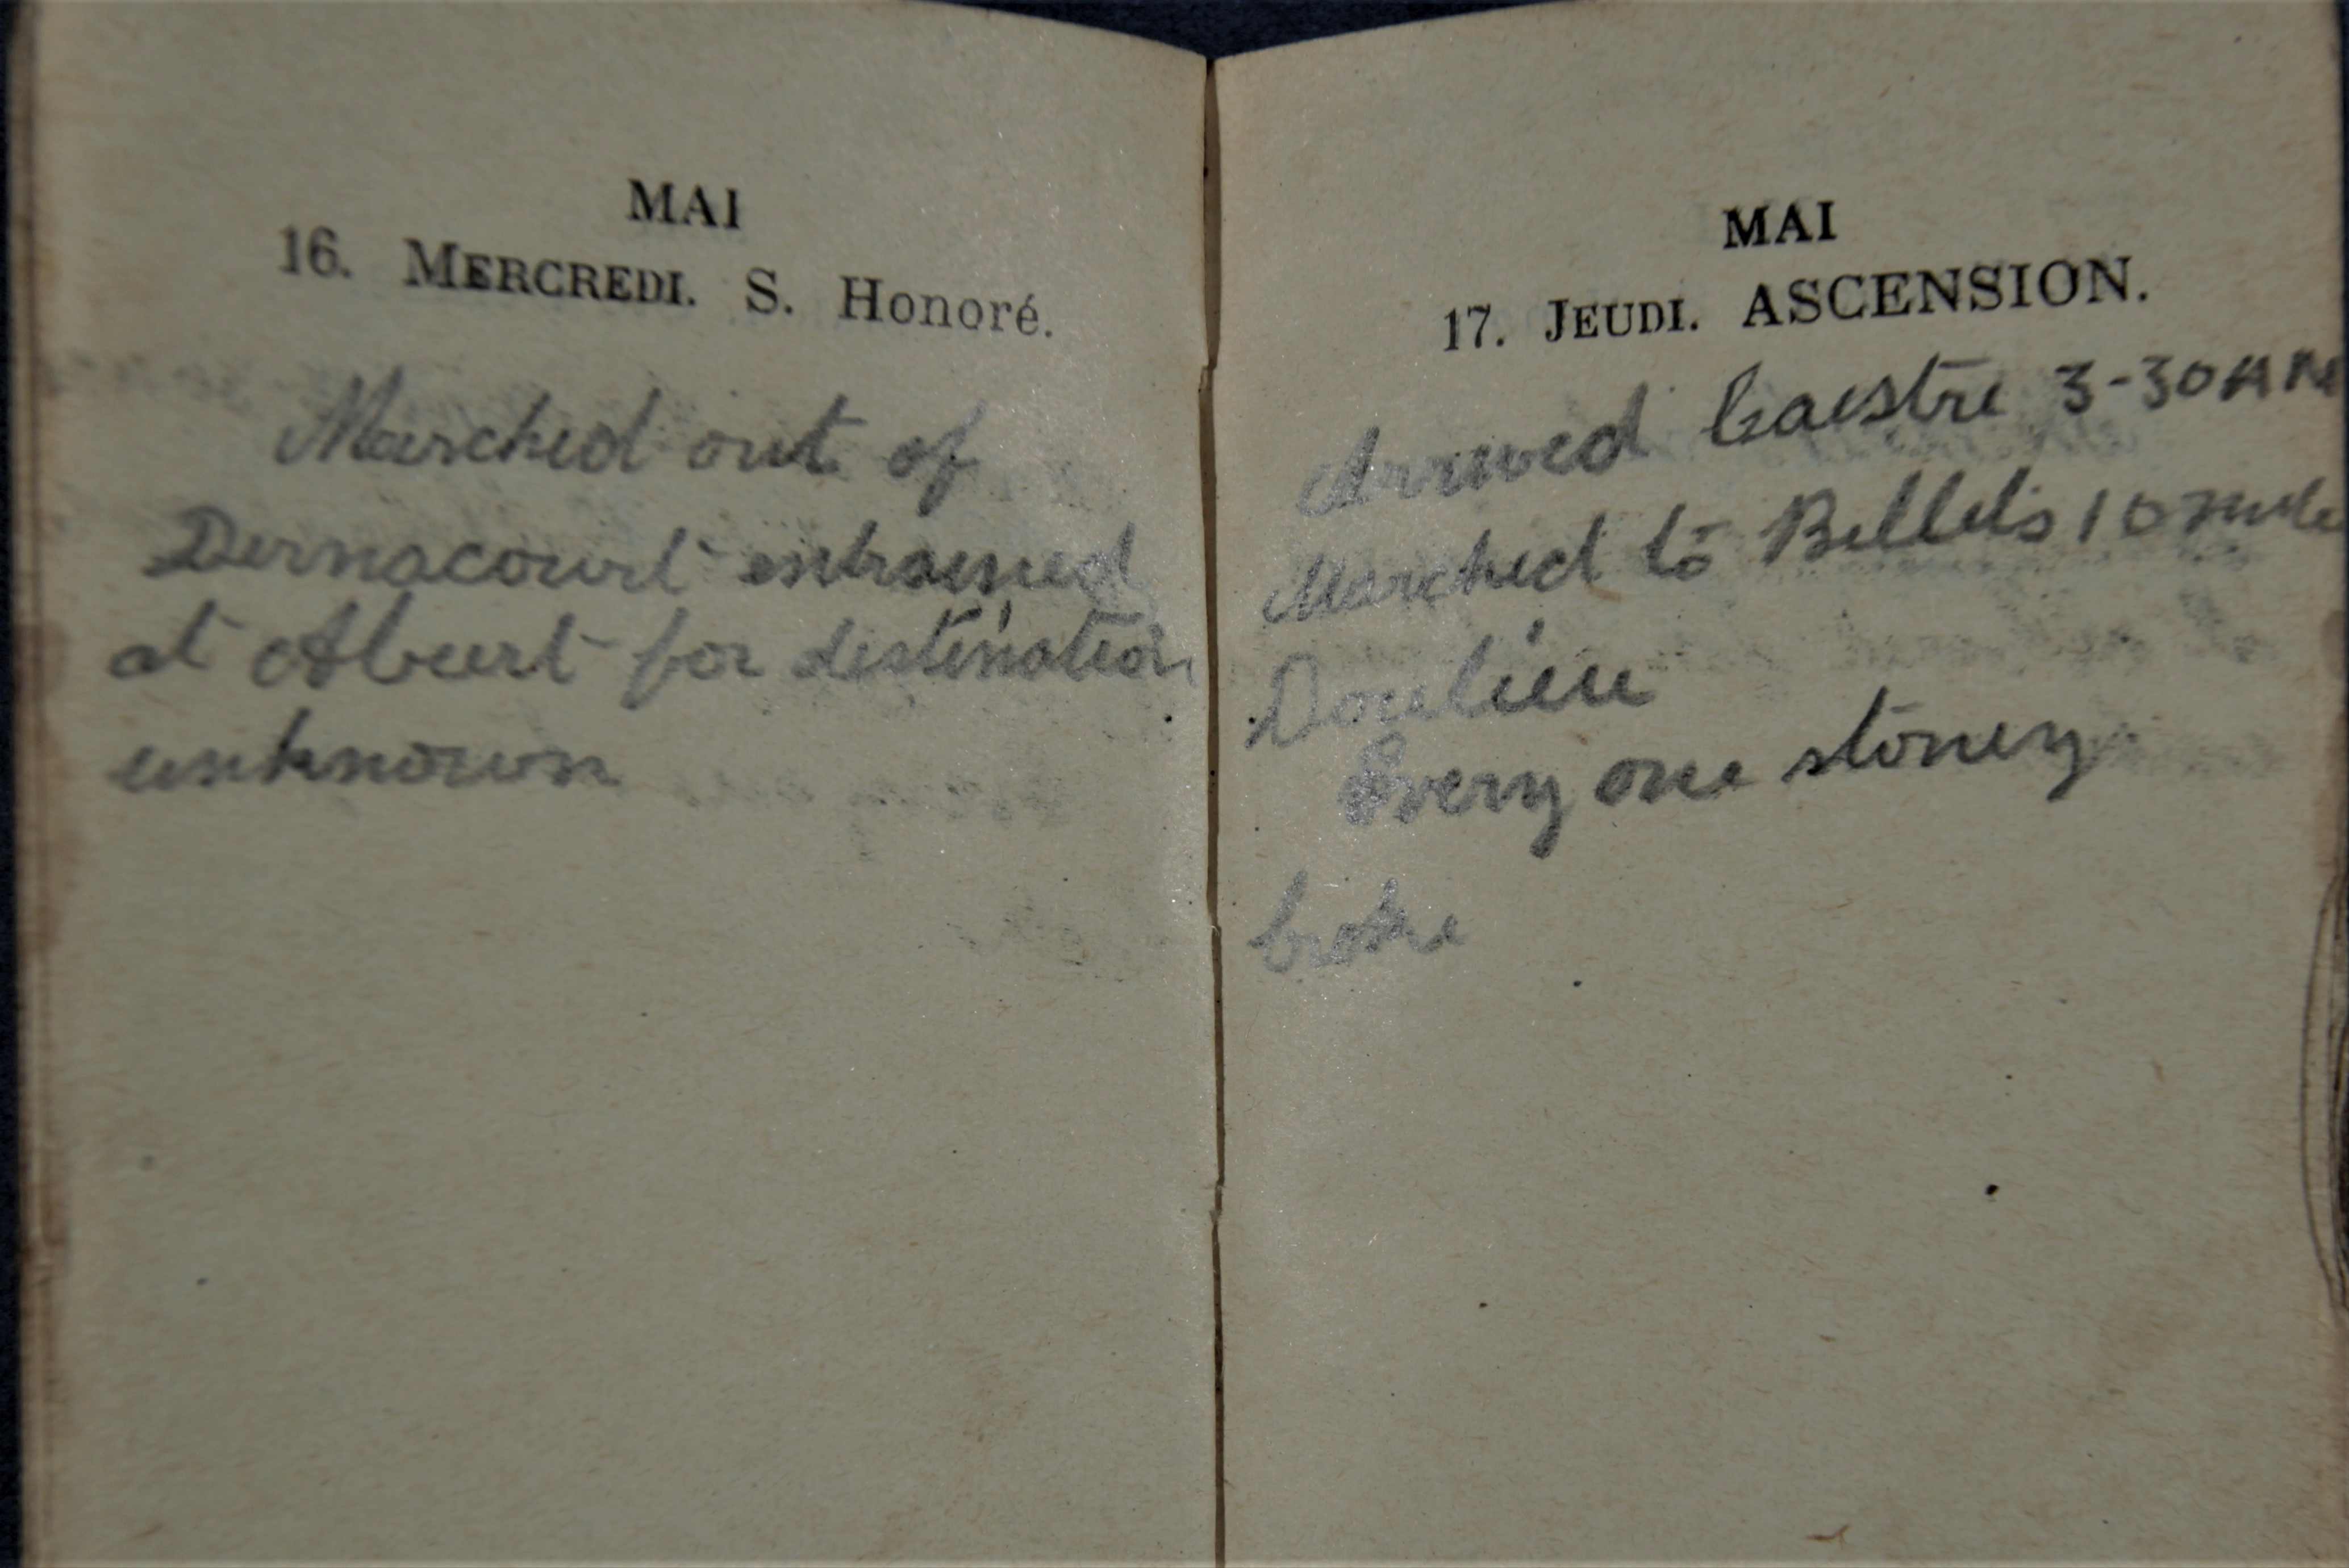 MAI
16. MERCREDI. S. Honoré.
Marched out of
Dernacourt entrained
at Albert for destination
unknown
MAI
17. JEUDI. ASCENSION.
Arrived Caestre 3-30 AM
Marched to Billets 10 mile
Doulieu
Every one stoney
broke